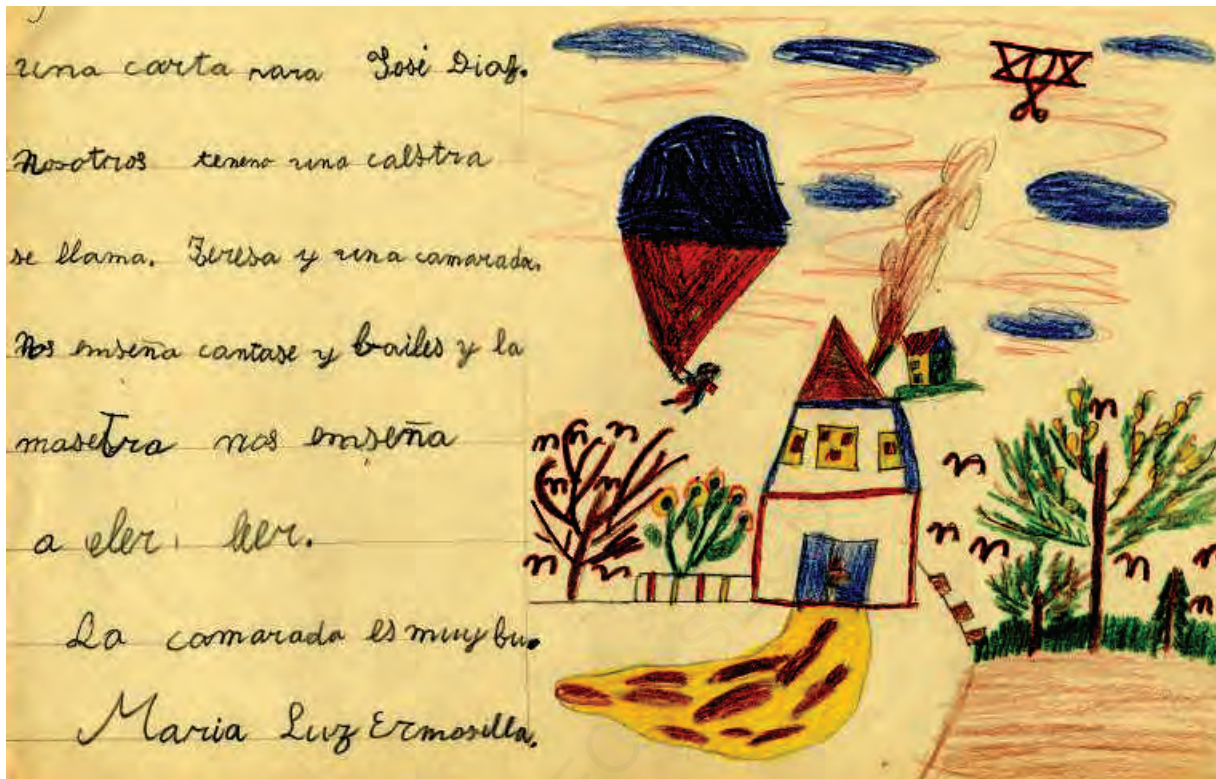 una carta para José Diaz.
Nosotros teneno una calstra
se llama. Teresa y una camarada.
Nos emseña cantase y bailes y la
masetra nos emseña
a eler. leer.
La camarada es muy bu.
Maria Luz Ermosilla.